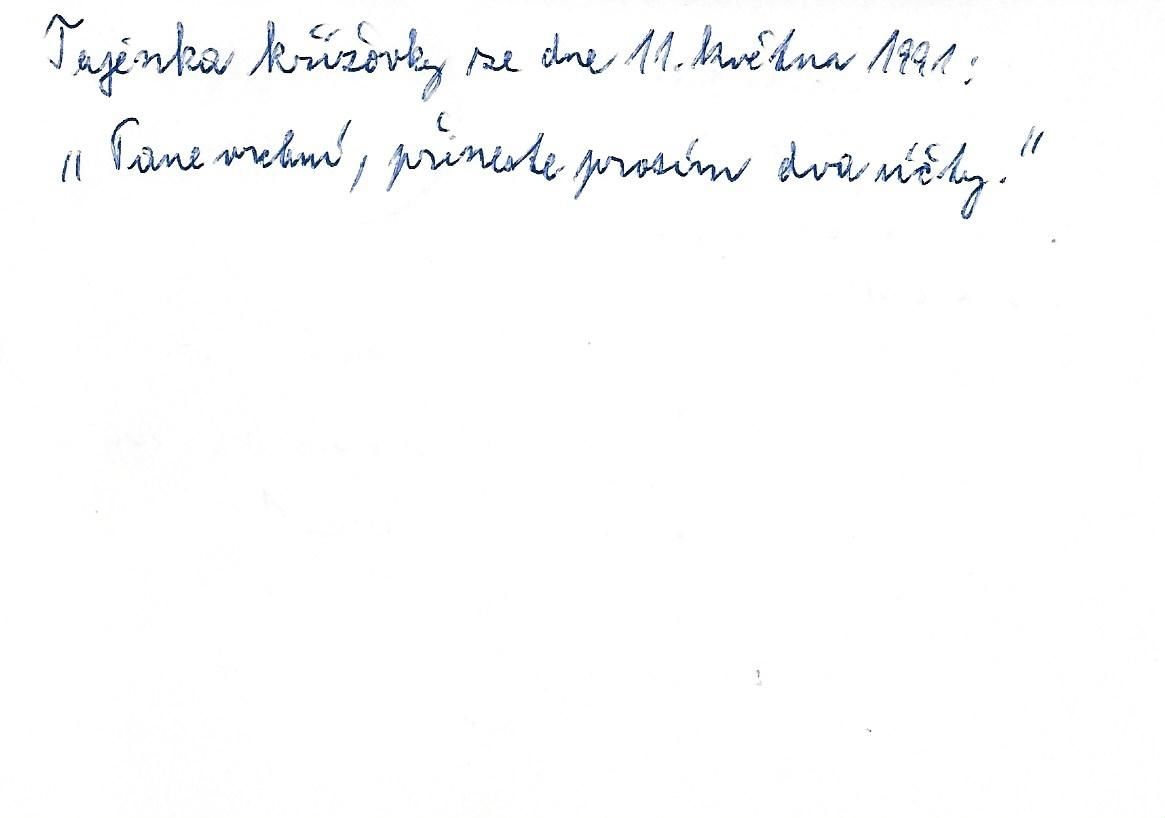 Tajenka křížovky ze dne 11. května 1991:
„Pane vrchní, přineste prosím dva účty."